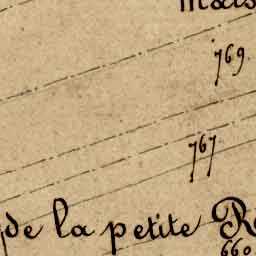 769.
767
de la petite
660